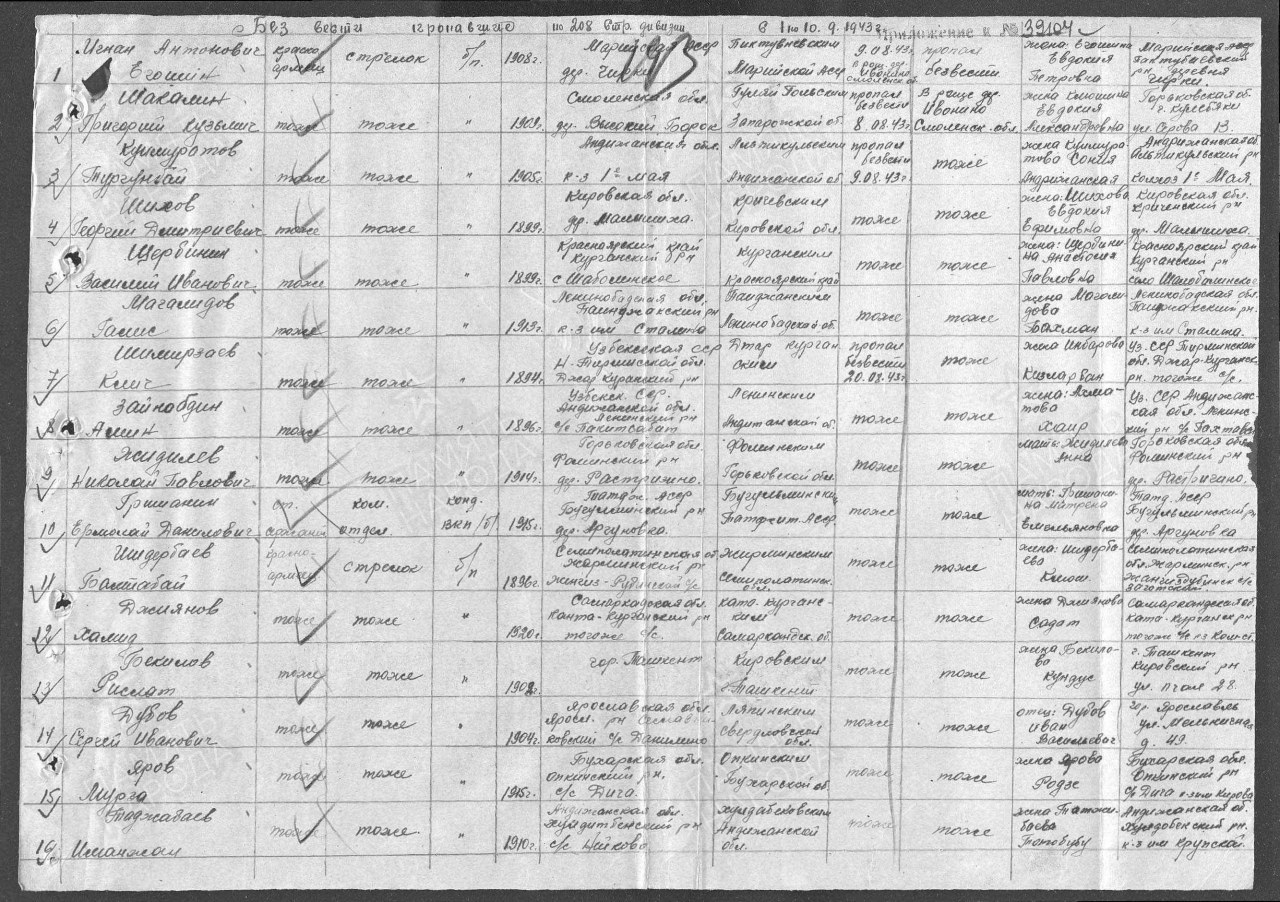 Без вести пропавшие по 208 стр. дивизии с 1 по 10.9.1943г. Приложение к № 39104
193
1 Игнат Антонович Егошин красноармеец стрелок б/п. 1908г. Марийская АССР дер. Чирки Пиктувиевским Марийской АССР 9.08.43г. Ивонино пропал безвести жена: Егошина Евдокия Петровна Марийская АССР рн деревня Чирки.
2 Шакалин Григорий Кузьмич тоже тоже 1909г. Смоленская обл. др. Высокий Борок Гуляй Польским Запарожской об. пропал безвести 8.08.43г. В р-нце др. Ивонино Смоленск. обл. жена Евдокия Александровна Горьковская об. г. Кулебяки ул. Серова 13.
3 Кушмуратов Тургунбай тоже тоже " 1905г. Андижанская обл. к-з 1е мая Алтикульским Андижанской об. пропал безвести 9.08.43г. тоже жена Кушмуратова София Андижанская Андижанская об. Алтикульский рн колхоз 1е Мая.
4 Шихов Георгий Дмитриевич тоже тоже " 1899г. Кировская обл. др. Малышиха. Кричевским Кировской обл. тоже тоже жена: Шихова Евдокия Ефимовна Кировская обл. Кричевский рн др. Малышиха.
5 Щербинин Василий Иванович тоже тоже " 1899г. Красноярский край Курганский рн с Шаболинское Курганским Красноярский край тоже тоже жена: Щербинина Анастасия Павловна Красноярский край Курганский рн село Шалоболинское
6 Магалидов Гамис тоже тоже " 1919г. Ленинобадская обл. Пянджакский рн к-з им Сталина Пянджакским Ленинобадской об. тоже тоже жена Магалидова Бахман Ленинобадская об. Пянджакский рн. к-з им Сталина.
7 Шимирзаев Клич тоже тоже " 1894г. Узбекская ССР Н-Тирмисской обл. Джар Курганский рн Джар курганским пропал безвести 20.08.43г. тоже жена Инбарова Кизларбан Уз. ССР Тирминской обл. Джар-Курганск. рн. тогоже с/с.
8 Зайнабдин Амин тоже тоже " 1896г. Узбекск. ССР. Андижанской обл. Ленинский рн с/с Пахтабат Ленинским Андижанской об. тоже тоже жена: Ахматова Хаир Уз. ССР Андижанская обл. Ленинский рн с/с Пахтабат
9 Жидилев Николай Павлович тоже тоже " 1914г. Горьковская обл. Фоминский рн дер. Растригино. Фоминским Горьковской обл. тоже тоже мать: Жидилева Анна Горьковская обл. Фоминский рн др. Растригино.
10 Гришанин Ермолай Данилович ст. сержант ком. отдел. канд. ВКП /б/. 1915г. Татар. АССР Бугульминский рн др. Аргуновка. Бугульминским Татреит. АССР тоже тоже мать: Гришанина Матрена Емельяновна Татар. АССР Бугульминский рн др. Аргуновка
11 Шидербаев Балтабай красноармеец стрелок б/п 1896г. Семиполатинская об. Жарминский рн Жирминским Семиполатинск. обл. тоже тоже жена: Шидербаева Клюш. Семиполатинская обл. Жарминск. рн
12 Джиянов Халид тоже тоже " 1920г. Самаркадская обл. Катта-Курганский рн тогоже с/с. ката-курганским Самаркандск. об. тоже тоже жена Джиянова Садат Самаркандской об. ката-Курганск рн
13 Бекилов Рислат тоже тоже " 1902г. гор. Ташкент Кировским г Ташкент тоже тоже жена Бекилова Кундус г. Ташкент Кировский рн ул. пчал 28.
14 Дубов Сергей Иванович тоже тоже " 1904г. Ярославской обл. Яросл. рн с/с Данилино Ляпинским Свердловской обл. тоже тоже отец: Дубов Иван Васильевич гор. Ярославль ул. Мельничная д. 49.
15 Яров Мурза тоже тоже " 1915г. Бухарская обл. Опкинский рн. с/с Дига. Опкинским Бухарской об. тоже тоже жена Ярова Родзе Бухарская об. Опкинский рн с/с Дига к-з им Кирова
16 Таджабаев Иманжан тоже тоже " 1910г. Андижанская обл. рн с/с Найково Худабековским Андижанской обл. тоже тоже жена Таджибаева Тотобубу Андижанской об. Худобекский рн. к-з им Крупской.